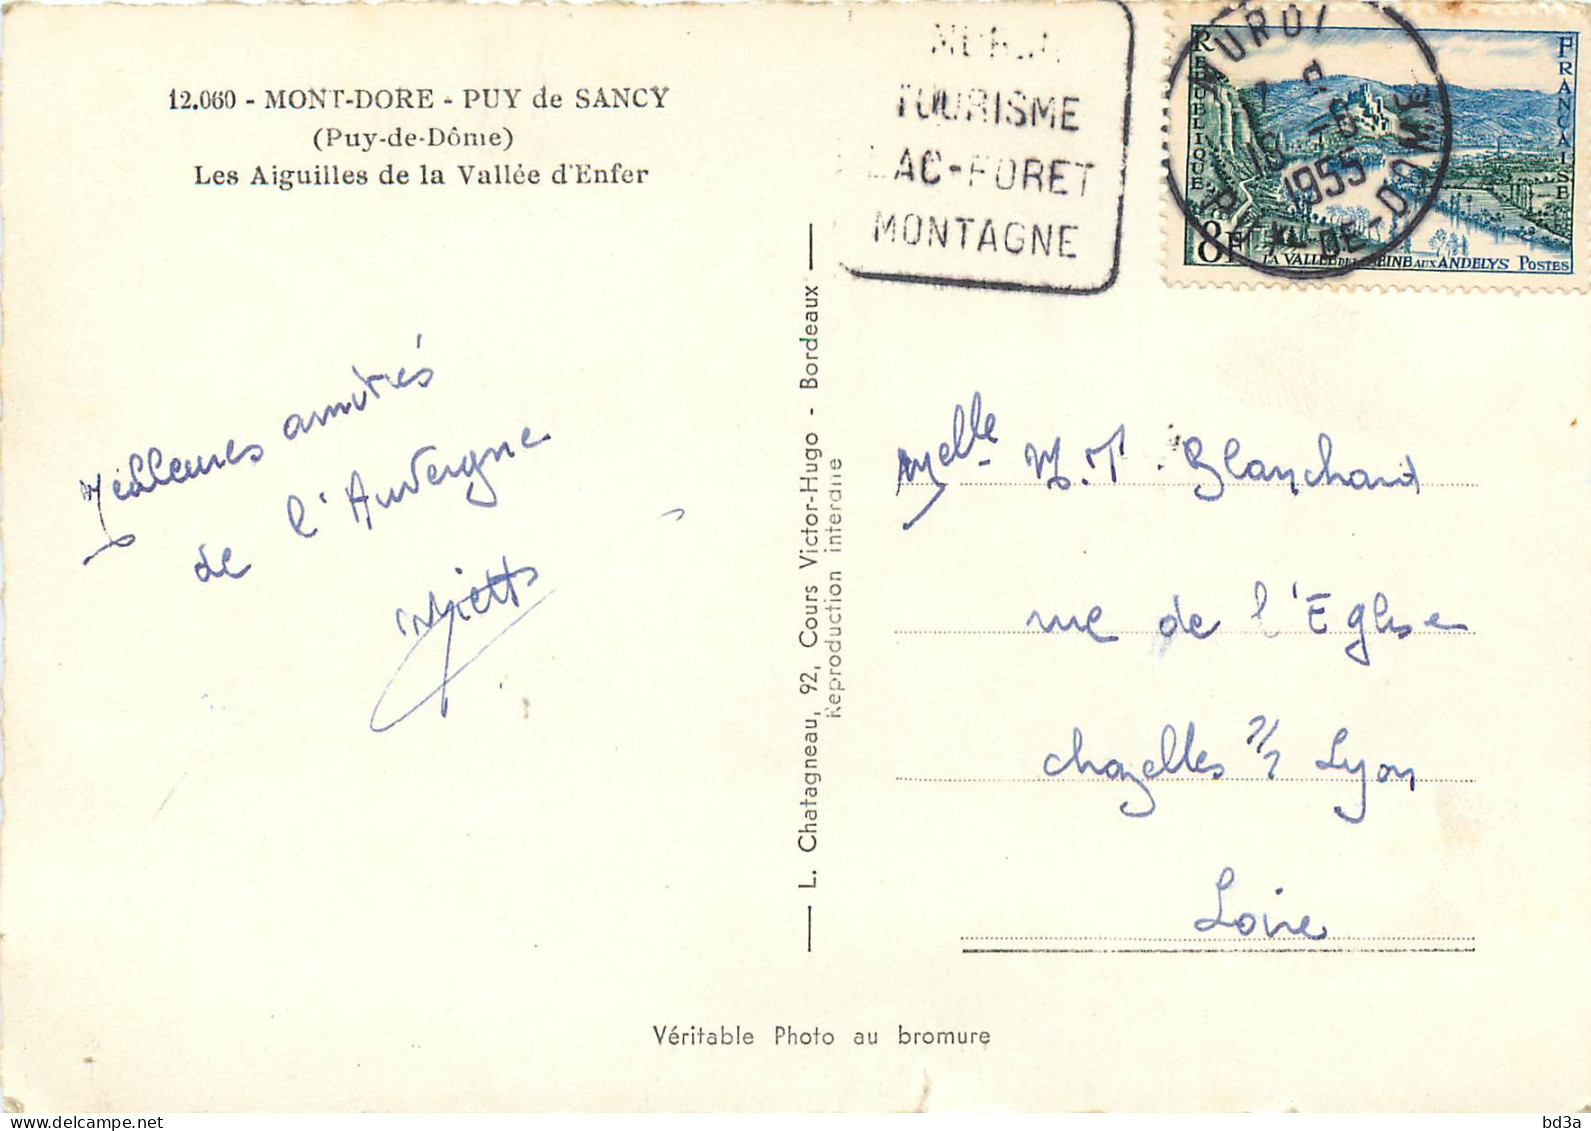 12.060 - MONT-DORE - PUY de SANCY
(Puy-de-Dôme)
Les Aiguilles de la Vallée d'Enfer
Meilleures amitiés
de l'Auvergne
TOURISME
LAC-FORET
MONTAGNE
REPUBLIQUE FRANCAISE
8F
LA VALLEE DE LA SEINE AUX ANDELYS POSTES
MUROL
17
16 -6
1955
PUY-DE-DOME
L. Chatagneau, 92, Cours Victor-Hugo - Bordeaux
Reproduction interdite
Melle M.T. Blanchard
rue de l'Eglise
Chazelles s/ Lyon
Loire
Véritable Photo au bromure
bd3a